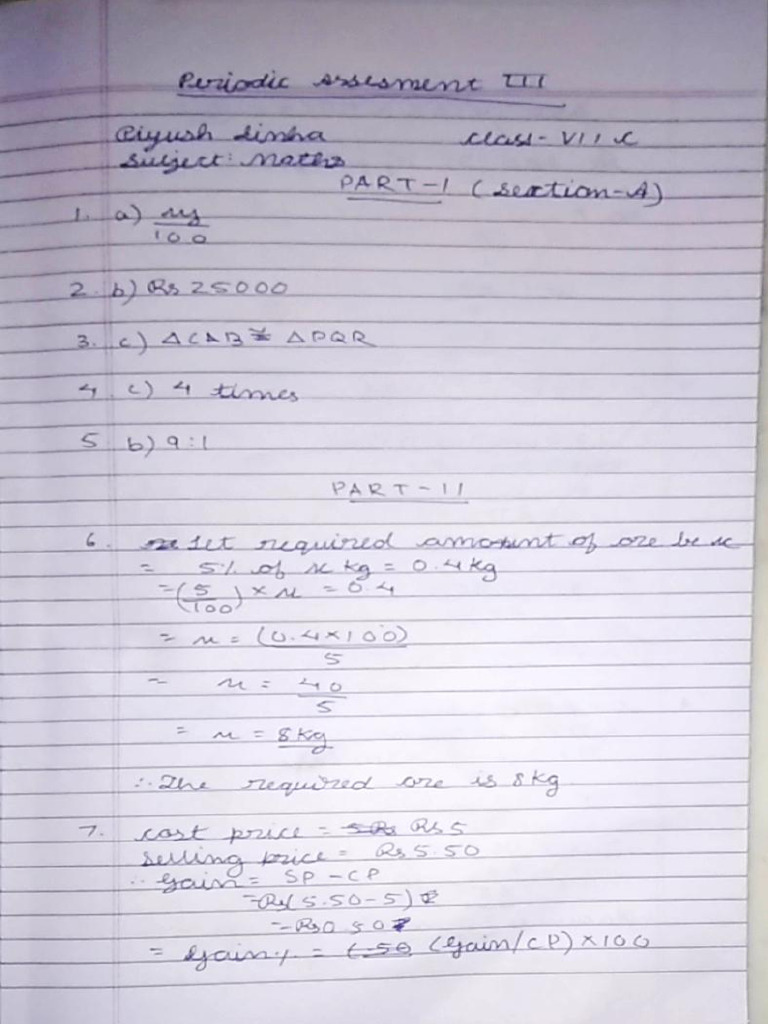 Periodic Assesment III
Piyush Sinha Class- VII C
Subject: Maths
PART-I (Section-A)
1. a) xy/100
2. b) Rs 25000
3. c) △CAB ≅ △PQR
4 c) 4 times
5 b) 9:1
PART-II
6. Let required amount of ore be x
= 5% of x kg = 0.4kg
= (5/100) × x = 0.4
= x = (0.4×100)/5
= x = 40/5
= x = 8kg
∴ The required ore is 8kg
7. cost price = Rs 5
selling price = Rs 5.50
∴ gain = SP-CP
=Rs(5.50-5)
=Rs0.50
= gain% = (gain/CP)×100